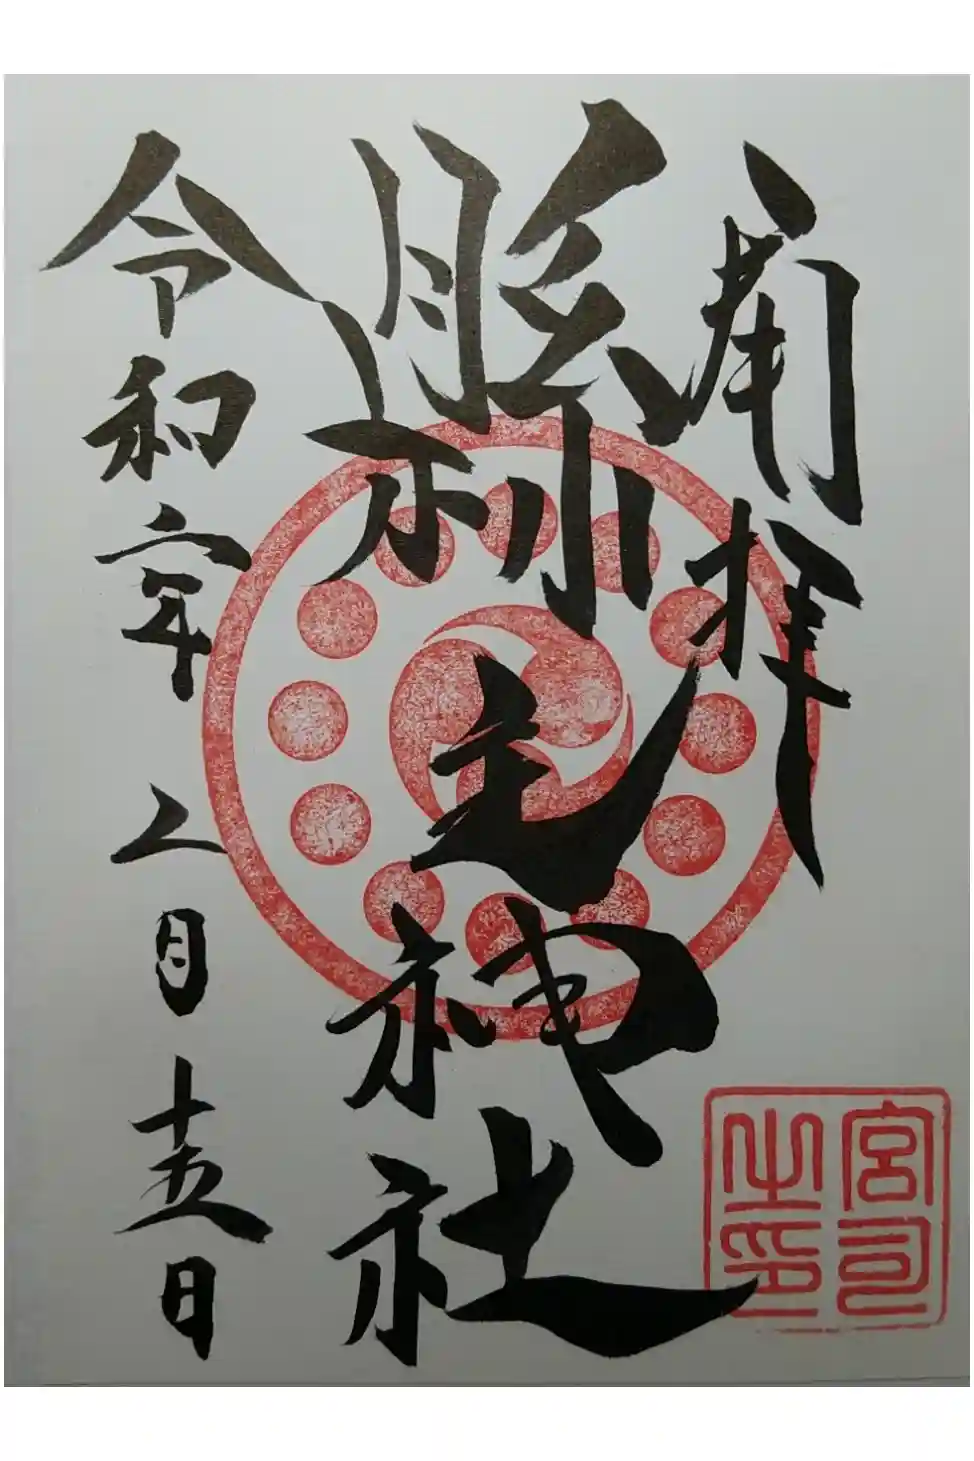 奉拝
縣主神社
令和二年二月十五日
宮司之印